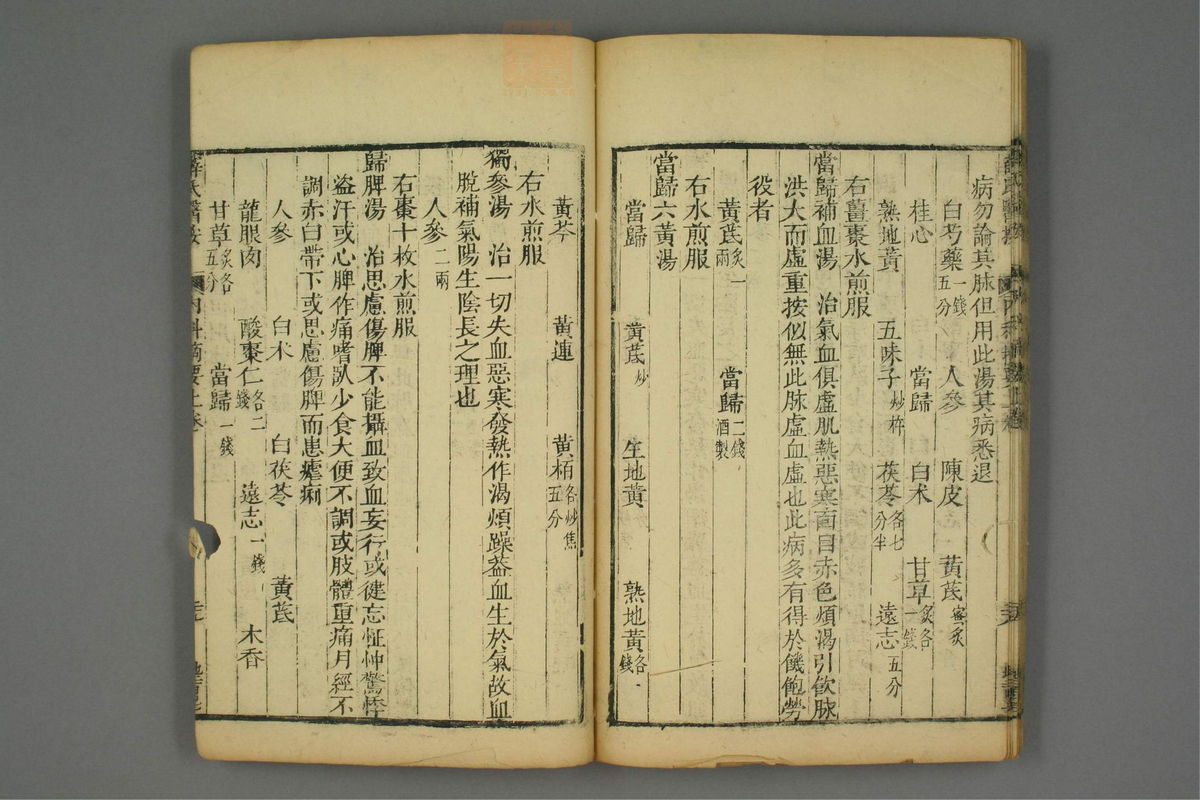 病勿論其脉但用此湯其病悉退
白芍藥一錢五分 人參 陳皮 黃芪蜜炙
桂心 當歸 白术 甘草炙各一錢
熟地黃 五味子炒杵 茯苓各七分半 遠志五分
右薑棗水煎服
當歸補血湯 治氣血俱虛肌熱惡寒面目赤色煩渴引飲脉
洪大而虛重按似無此脉虛血虛也此病多有得於饑飽勞
役者
黃芪炙一兩 當歸二錢酒製
右水煎服
當歸六黃湯
當歸 黃芪炒 生地黃 熟地黃各一錢
黃芩 黃連 黃栢各炒焦五分
右水煎服
獨參湯 治一切失血惡寒發熱作渴煩躁蓋血生於氣故血
脫補氣陽生陰長之理也
人參二兩
右棗十枚水煎服
歸脾湯 治思慮傷脾不能攝血致血妄行或健忘怔忡驚悸
盜汗或心脾作痛嗜臥少食大便不調或肢體重痛月經不
調赤白帶下或思慮傷脾而患瘧痢
人參 白术 白茯苓 黃芪
龍眼肉 酸棗仁各二錢 遠志一錢 木香
甘草炙各五分 當歸一錢
薛氏醫按 內科摘要上卷